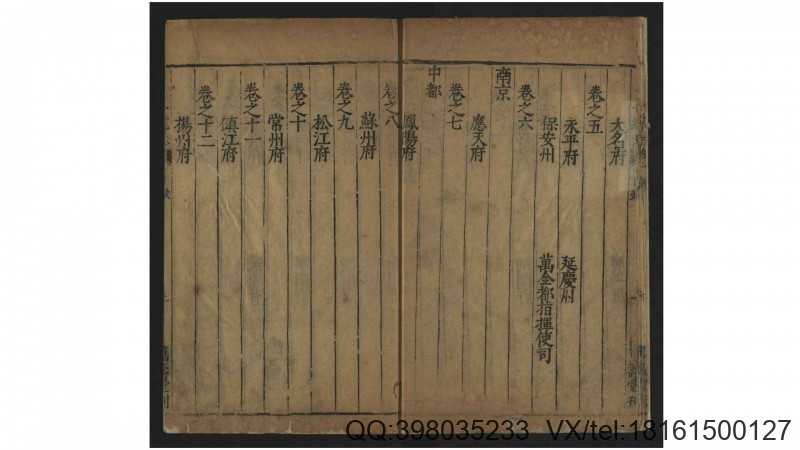 大名府
卷之五
永平府 延慶州
保安州 萬全都指揮使司
卷之六
南京
應天府
卷之七
中都
鳳陽府
卷之八
蘇州府
卷之九
松江府
卷之十
常州府
卷之十一
鎮江府
卷之十二
揚州府
QQ:398035233 VX/tel:18161500127